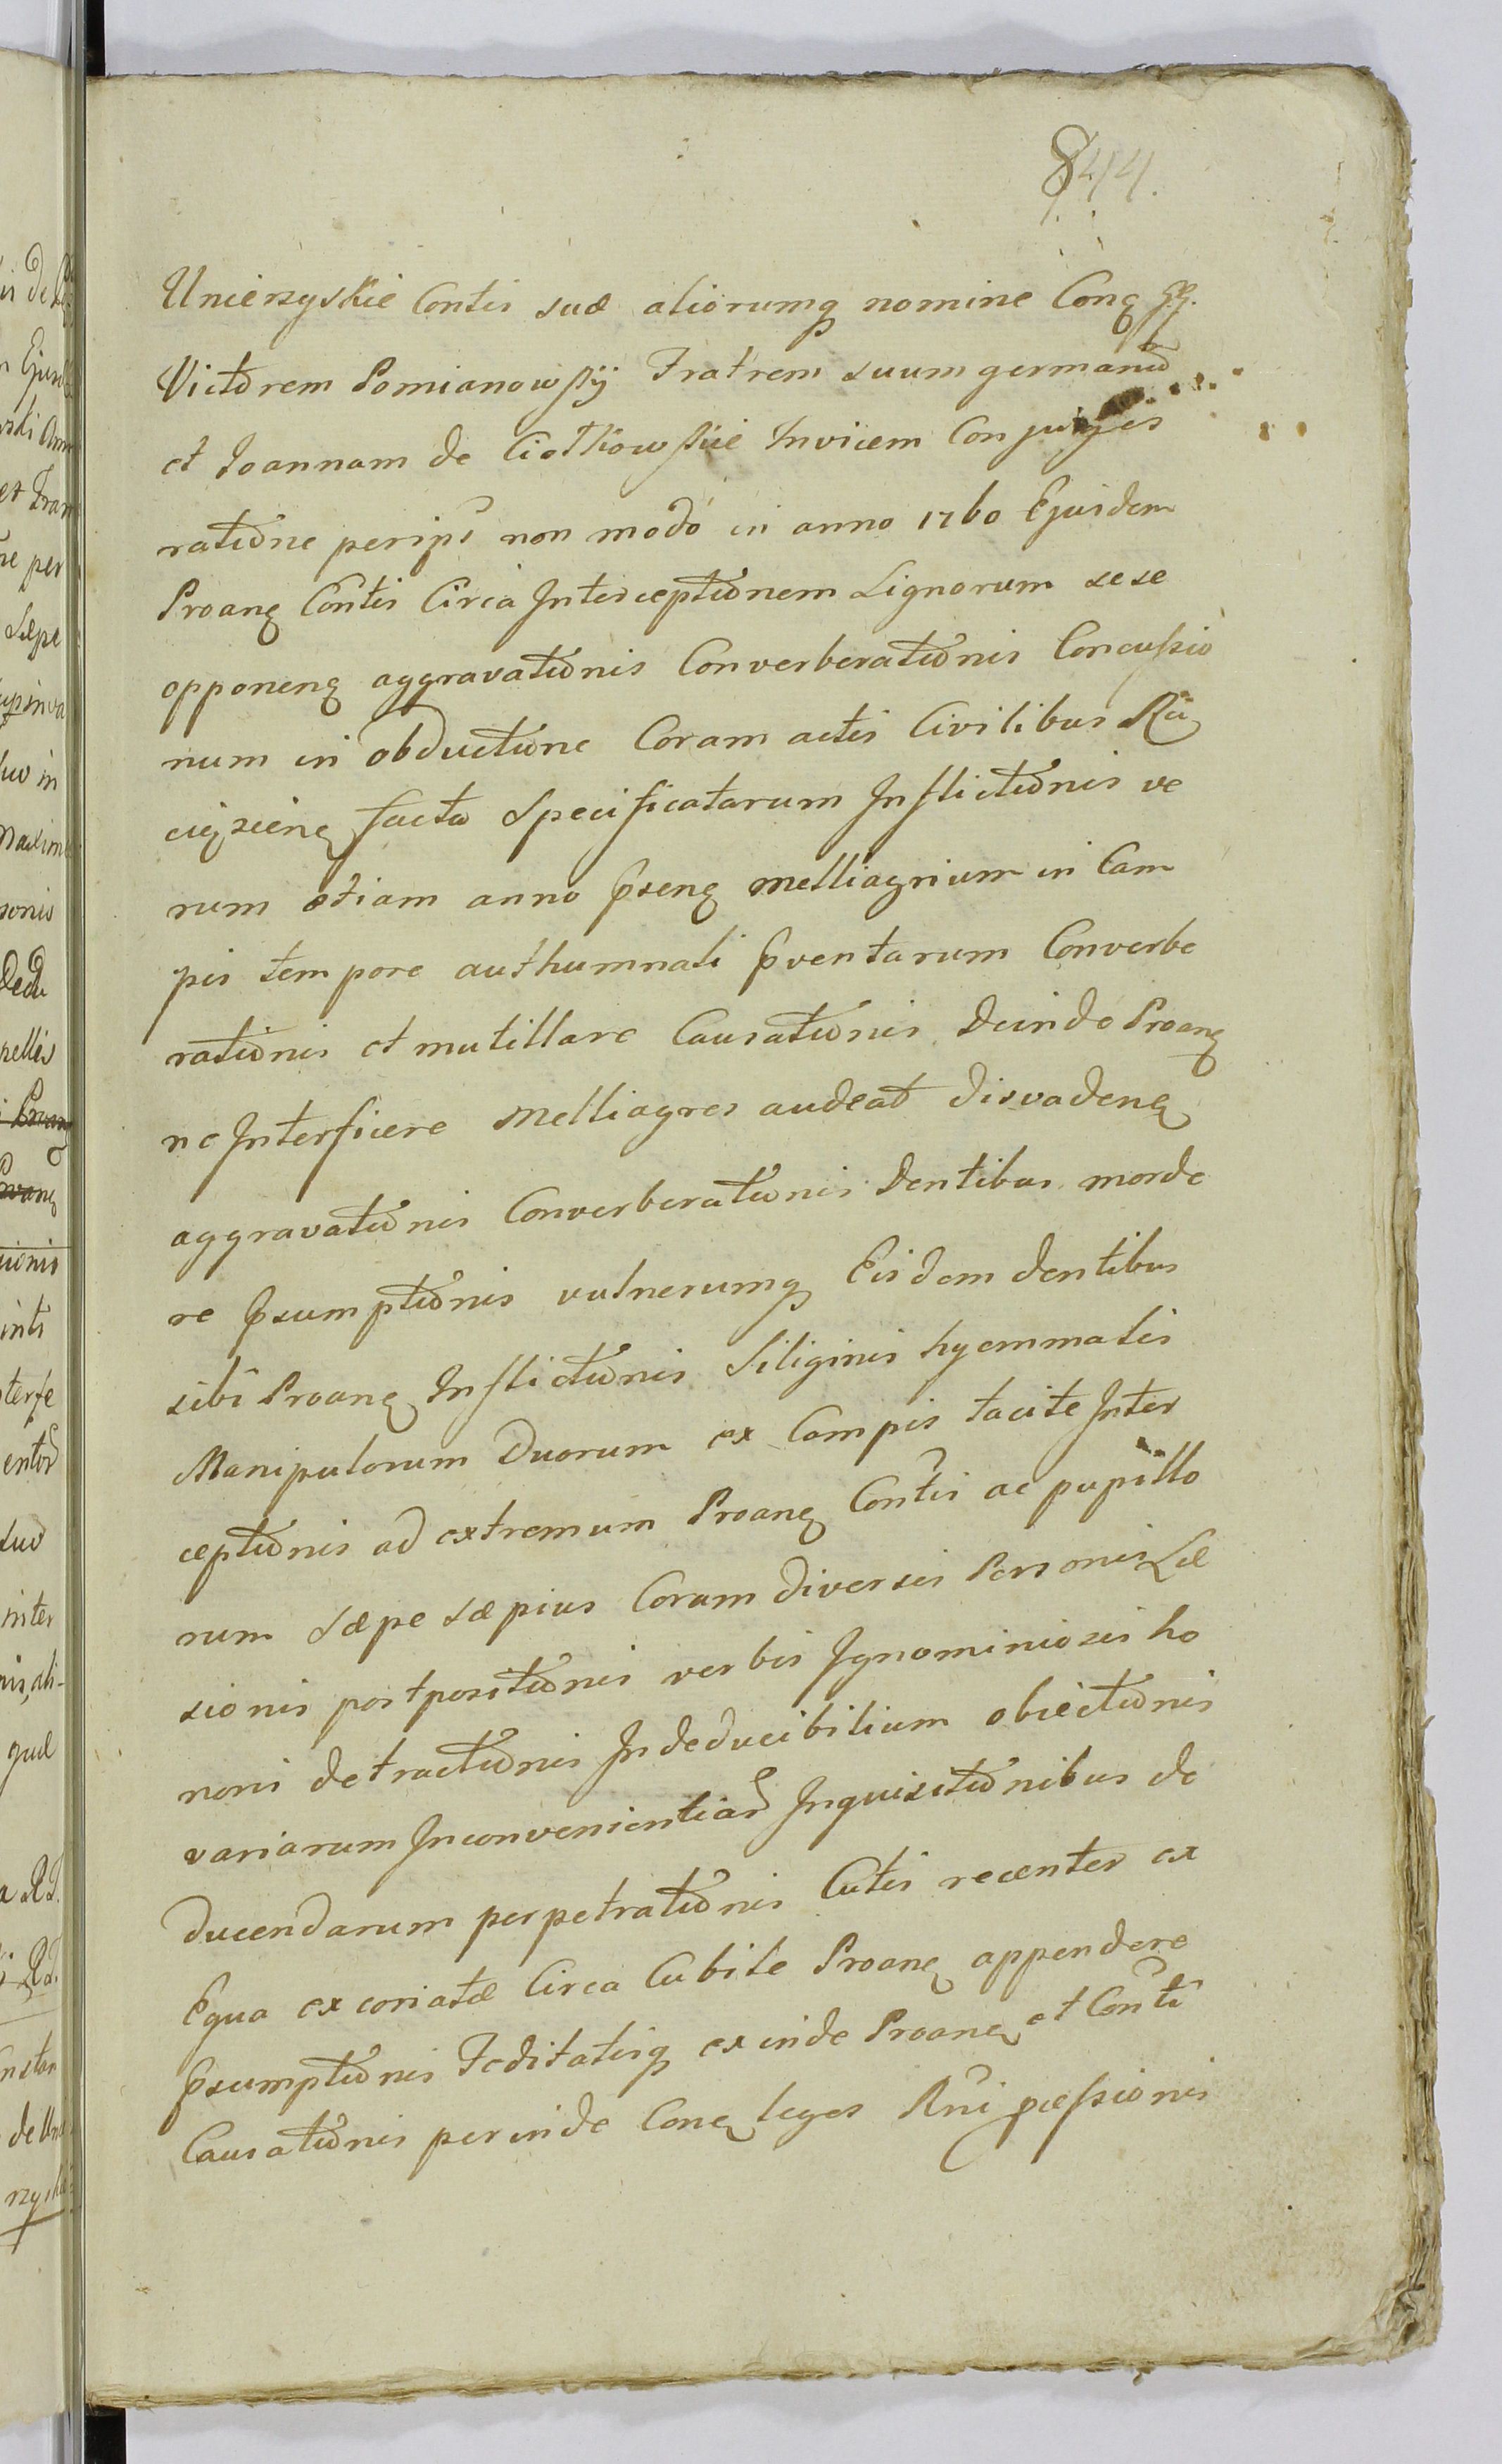 844.
Unierzyskie Contis suæ aliorumq nomine Conq GG.
Victorem Pomianowskij Fratrem suum germanu
et Joannam de Ciołkowskie Invicem Conjuges
ratione non modo in anno 1760 Ejusdem
Proanq Contis Circa Interceptionem Lignorum sese
opponenq aggravationis Converberationis Concussio
num in obductione Coram actis Civilibus
facta Specificatarum Inflictionis ve
rum etiam anno pñsenq melliagrium in Cam
pis tempore authumnali pventarum Converbe
rationis et mutillare Causationis Deinde Proanq
ne Interficere Melliagres audeat disvadenq
aggravationis Converberationis Dentibus morde
re psumptionis vulnerumq Eisdem dentibus
sibi Proanq Inflictionis Siliginis hyemmalis
Manipulorum Duorum ex Campis tacite Inter
ceptionis ad extremum Proanq Contis ac pupillo
rum Sæpe Sæpius Coram diversis Personis Læ
sionis postpositionis verbis Ignominiosis ho
noris detractionis Indeducibilium obiectionis
variarum Inconvenientiar Inquisitionibus de
ducendarum perpetrationis Cutis recenter ex
Equa excoriatæ Circa Cubile Proanq appendere
psumptionis Feditatisq exinde Proanq et Conti
Causationis perinde Conq leges Rni